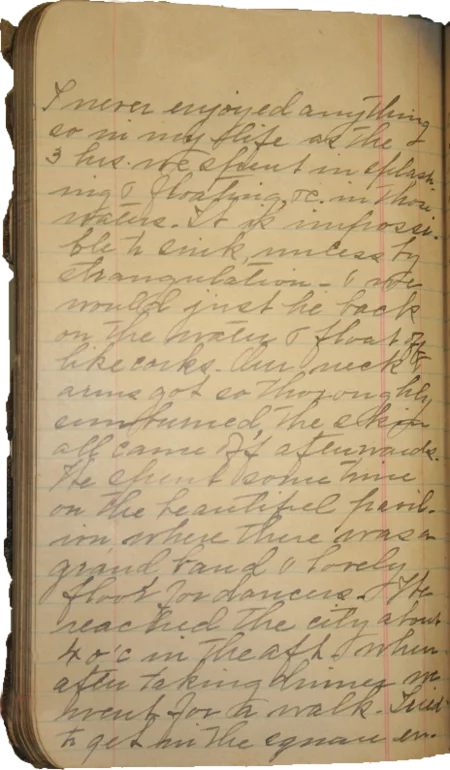 I never enjoyed anything
so in my life as the
3 hrs. we spent in splash-
ing & floating &c. in those
waters. It is impossi-
ble to sink, unless by
strangulation - & we
would just lie back
on the water & float off
like corks. Our neck &
arms got so thoroughly
sunburned, the skin
all came off afterwards.
We spent some time
on the beautiful pavil-
ion where there was a
grand band & lovely
floor for dancers. We
reached the city about
4 o'c in the aft. when
after taking dinner we
went for a walk. Tried
to get in the square en-